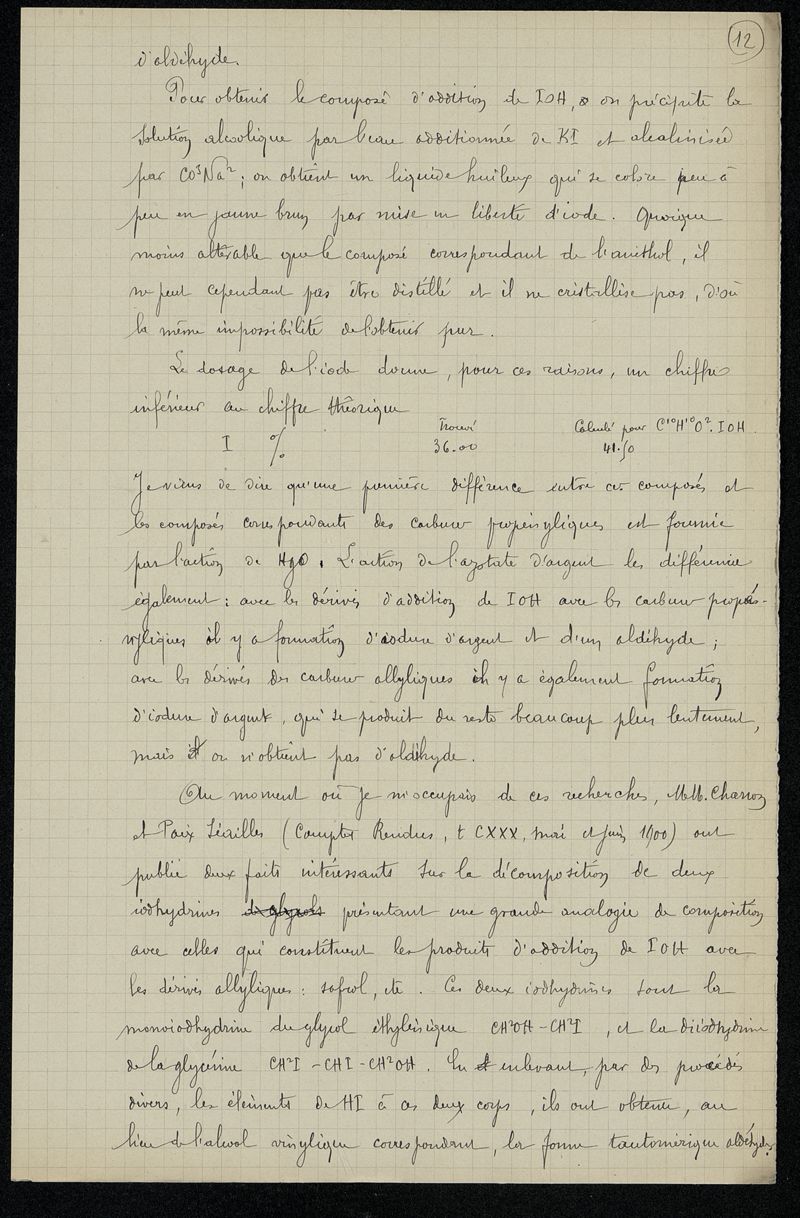 12
d'aldéhyde.
Pour obtenir le composé d'addition de IOH, on précipite la
solution alcoolique par l'eau additionnée de KI et alcalinisée
par CO³Na²; on obtient un liquide huileux qui se colore peu à
peu en jaune brun par mise en liberté d'iode. Quoique
moins altérable que le composé correspondant de l'anéthol, il
ne peut cependant pas être distillé et il ne cristallise pas, d'où
la même impossibilité de l'obtenir pur.
Le dosage de l'iode donne, pour ces raisons, un chiffre
inférieur au chiffre théorique
Trouvé Calculé pour C¹⁰H¹⁰O².IOH.
I % 36.00 41.50
Je viens de dire qu'une première différence entre ces composés et
les composés correspondants des carbures propényliques est fournie
par l'action de HgO. L'action de l'azotate d'argent les différencie
également: avec les dérivés d'addition de IOH avec les carbures propé-
nyliques il y a formation d'iodure d'argent et d'un aldéhyde;
avec les dérivés des carbures allyliques il y a également formation
d'iodure d'argent, qui se produit du reste beaucoup plus lentement,
mais on n'obtient pas d'aldéhyde.
Au moment où je m'occupais de ces recherches, MM. Charon
et Paix Séailles (Comptes Rendus, t CXXX, mai et juin 1900) ont
publié deux faits intéressants sur la décomposition de deux
iodhydrines de glycols présentant une grande analogie de composition
avec celles qui constituent les produits d'addition de IOH avec
les dérivés allyliques: safrol, etc. Ces deux iodhydrines sont la
monoiodhydrine du glycol éthylénique CH²OH-CH²I, et la diiodhydrine
de la glycérine CH²I-CHI-CH²OH. En enlevant, par des procédés
divers, les éléments de HI à ces deux corps, ils ont obtenu, au
lieu de l'alcool vinylique correspondant, la forme tautomérique aldéhyde.